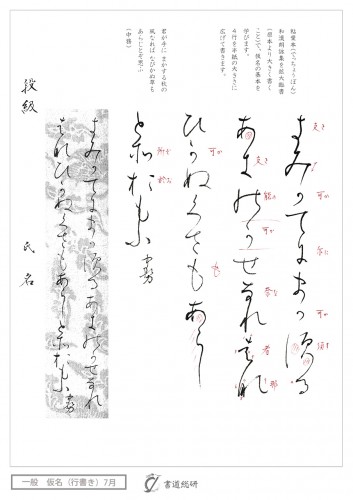 粘葉本(でっちょうぼん)
和漢朗詠集を拡大臨書
(原本より大きく書く
こと)で、仮名の基本を
学びます。
4行を半紙の大きさに
広げて書きます。
君が手に まかする秋の
風なれば なびかぬ草も
あらじとぞ思ふ
(中務)
支み可てにま可須る
あきの可せなれ者那
ひ可ぬくさもあらし
と所於もふ 中務
段級
氏名
一般 仮名(行書き)7月
書道総研